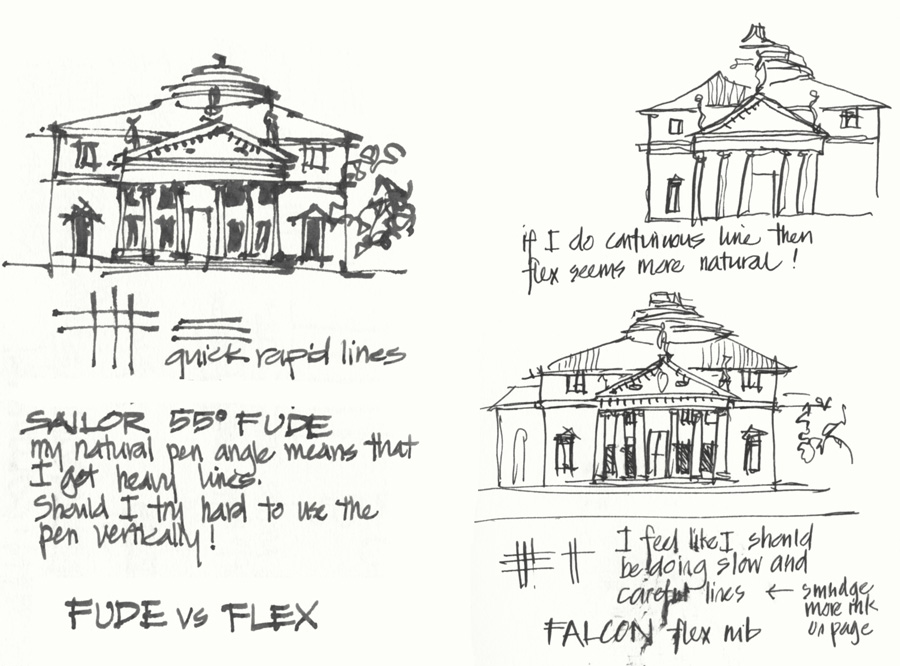 quick rapid lines
SAILOR 55° FUDE
my natural pen angle means that
I get heavy lines.
Should I try hard to use the
pen vertically!
FUDE vs FLEX
if I do continuous line then
flex seems more natural!
I feel like I should
be doing slow and
careful lines ← smudge
more ink
on page
FALCON flex nib